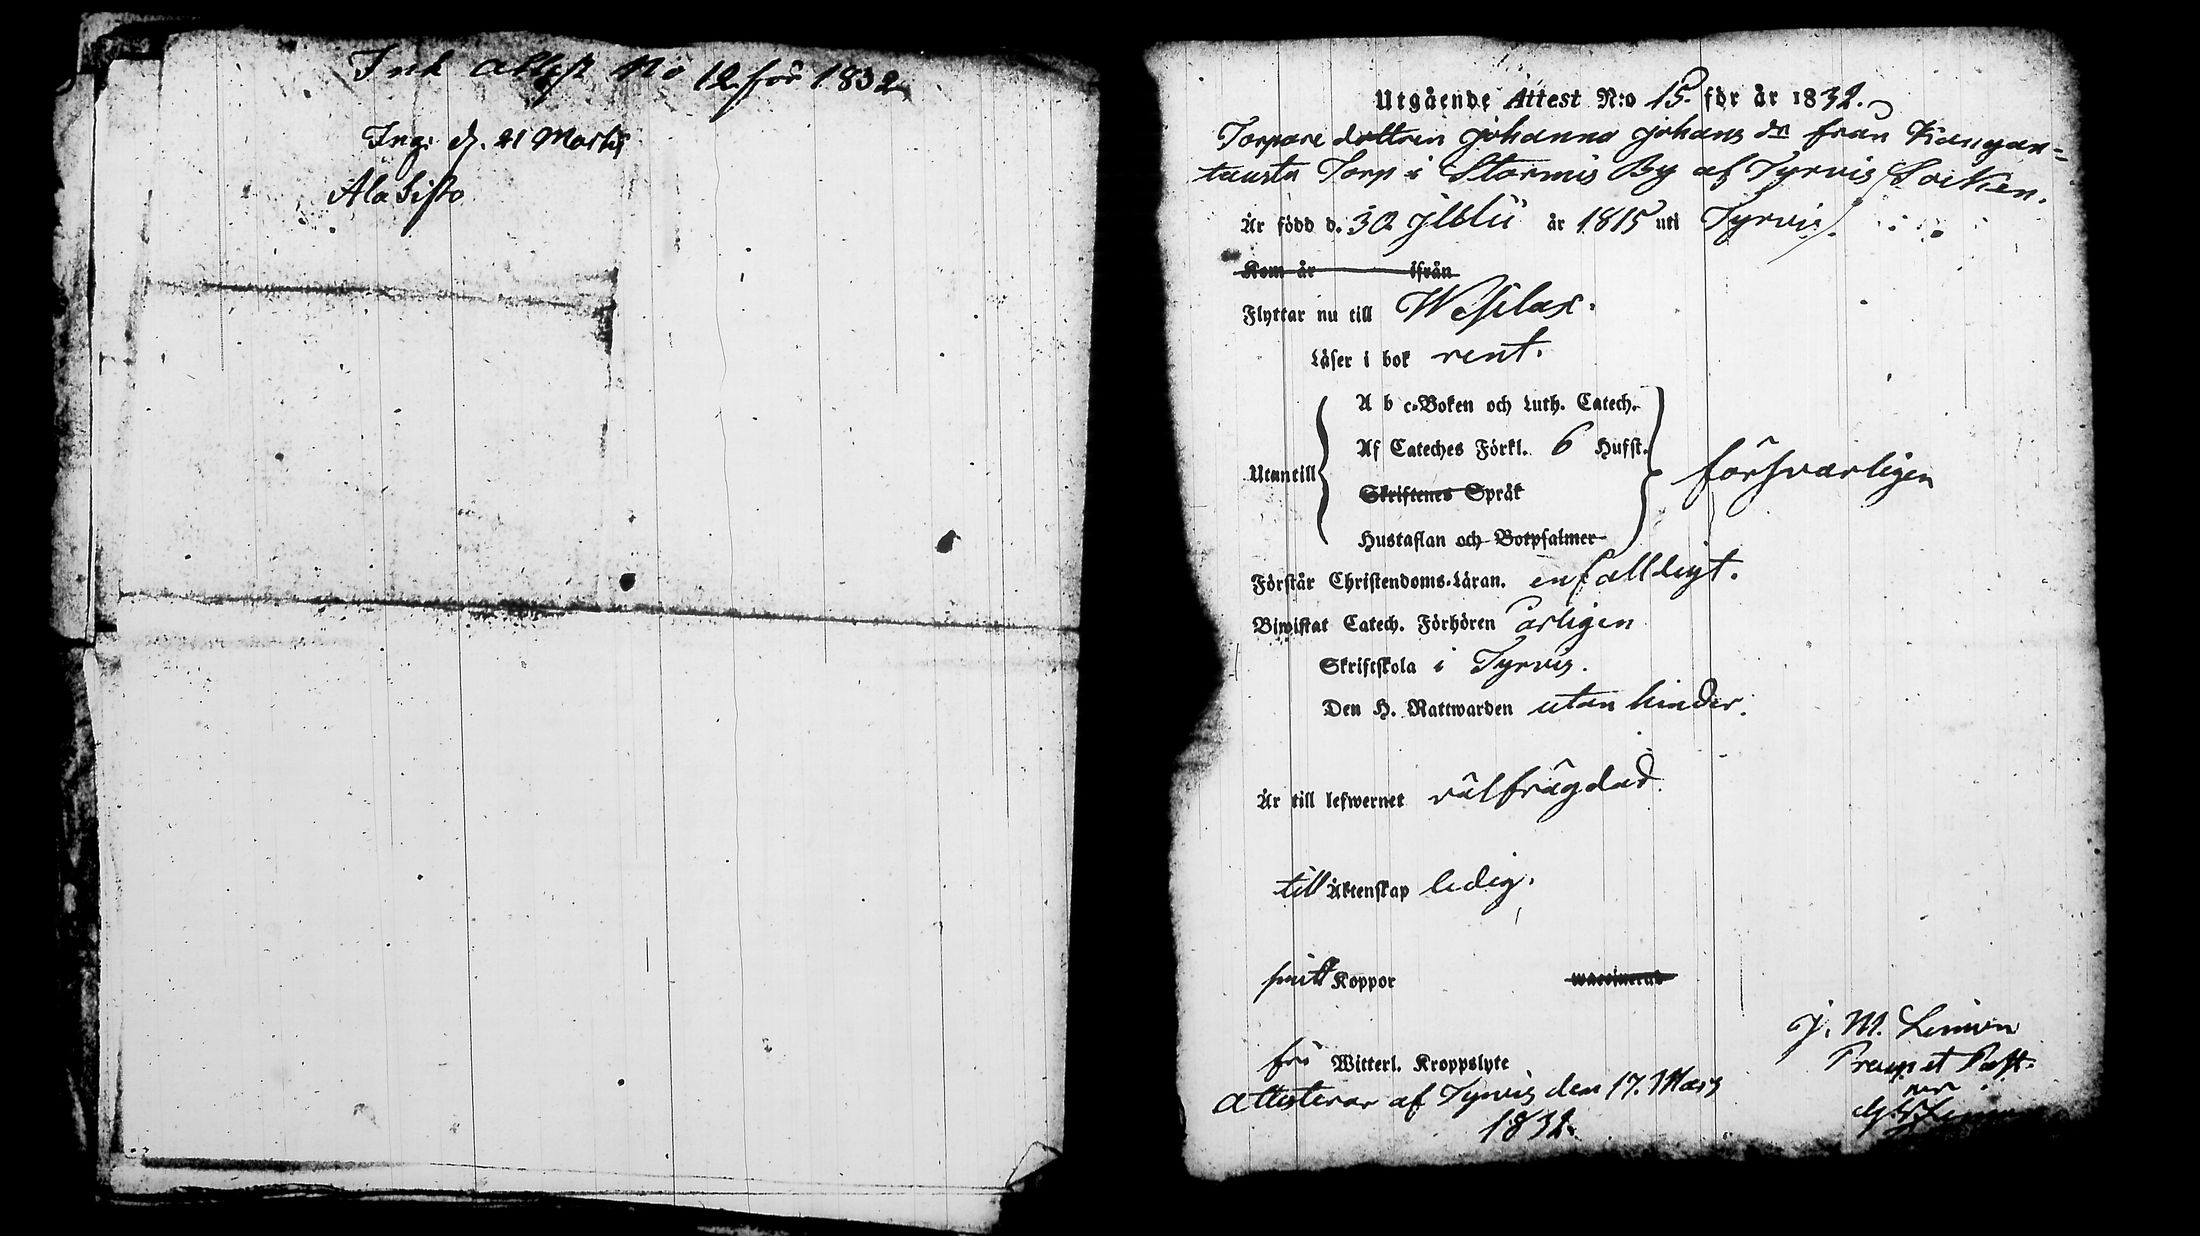 Ink Attest No 12 för 1832
Ing: d. 21 Martii
Ala Sisto
Utgående Attest N:o 15. för år 1832.
Torpare dottren Johanna Johans dr från Kiangan=
tausta Torp i Stormis By af Tyrvis Socken.
Är född d. 30 Julii år 1815 uti Tyrvis.
Kom år ifrån
Flyttar nu till Wesilax.
Läser i bok rent.
A b c-Boken och Luth. Catech.
Af Cateches Förkl. 6 Hufst.
Utantill försvarligen
Skriftenes Språk
Hustaflan och Botpsalmer
Förstår Christendoms-Läran. enfalldigt.
Biwistat Catech. Förhören årligen
Skriftskola i Tyrvis.
Den H. Nattwarden utan hinder.
Är till lefwernet välfrägdad.
till Äktenskap ledig.
haft Koppor
fri Witterl. Kroppslyte
Attesterar af Tyrvis den 17. Mars
1832.
J. M.
Praep et Past.